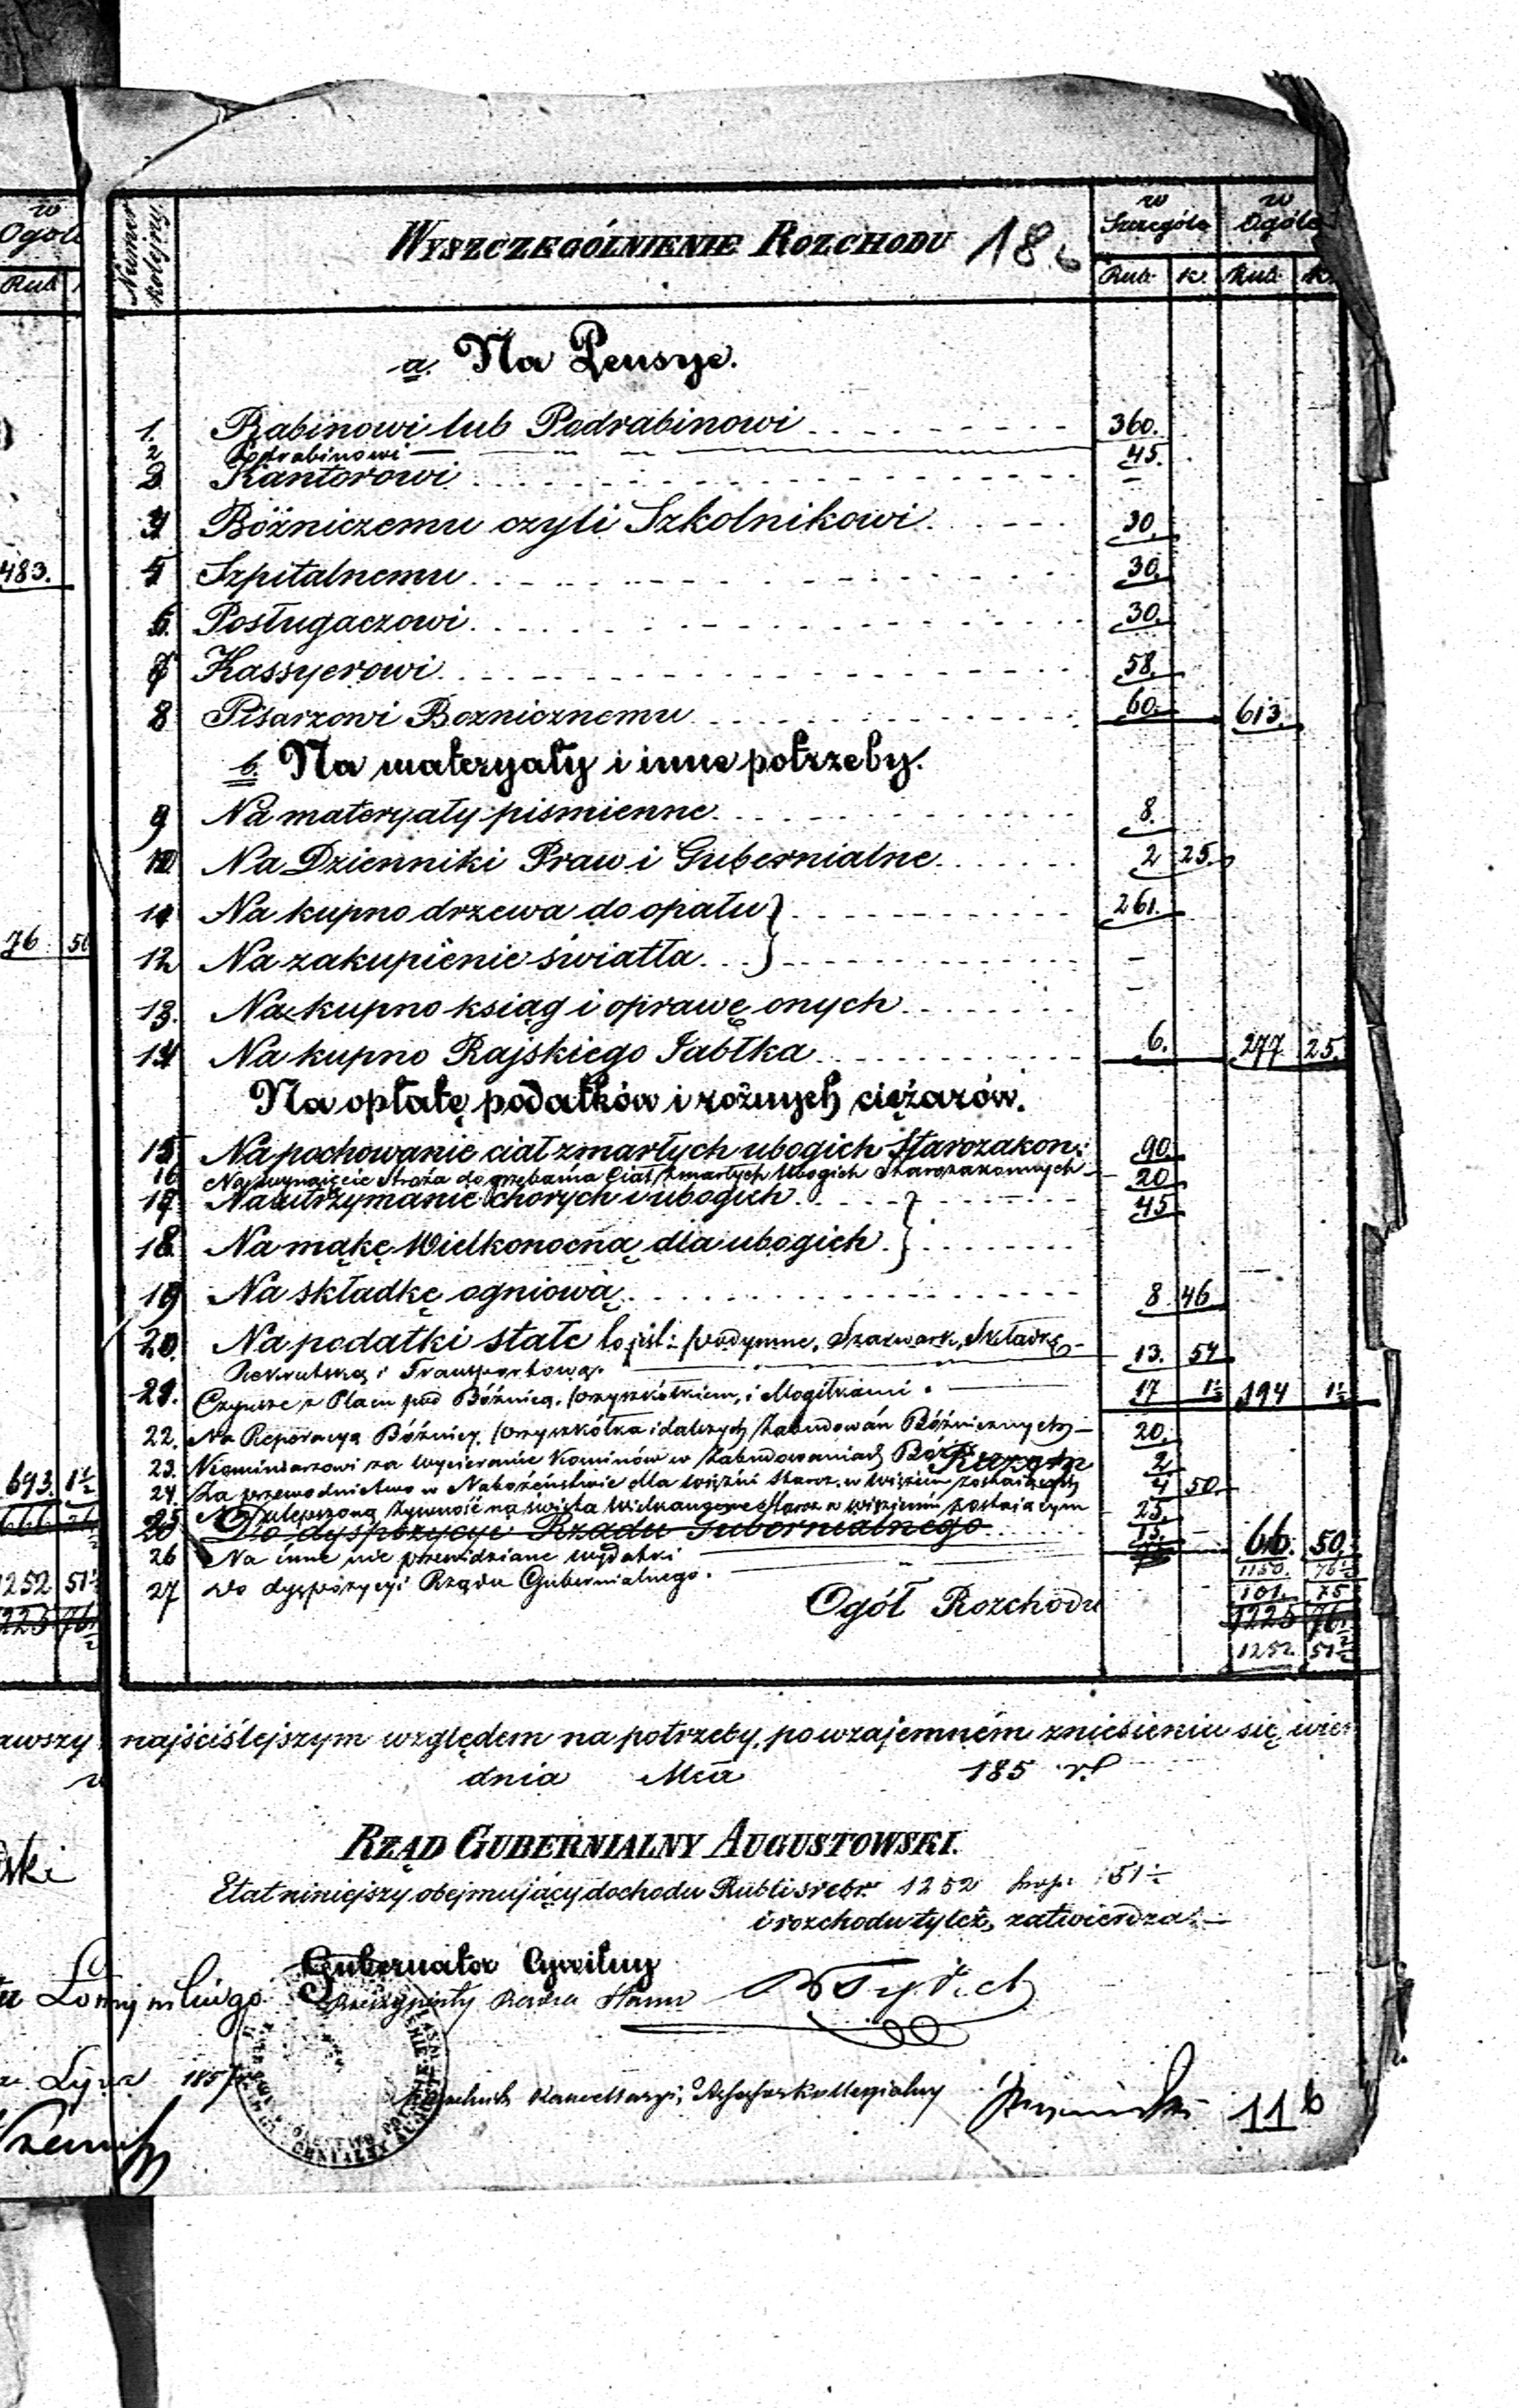 w
Ogóle
Rub.
483.
76 50
693. 1½
1252 51½
Numer kolejny.
WYSZCZEGÓLNIENIE ROZCHODU 18
w Szczególe
w Ogóle
Rub. K. Rub. K.
a. Na Pensye.
1. Rabinowi lub Podrabinowi 360.
2 Podrabinowi 45.
3 Kantorowi –
4 Bóźniczemu czyli Szkolnikowi 30.
5 Szpitalnemu 30.
6. Posługaczowi 30.
7 Kassyerowi 58.
8 Pisarzowi Boznicznemu 60. 613.
b. Na materyały i inne potrzeby.
9 Na materyały pismienne 8.
10 Na Dzienniki Praw i Gubernialne 2 25.
11 Na kupno drzewa do opału 261.
12 Na zakupienie światła –
13. Na kupno ksiąg i oprawę onych –
14 Na kupno Rajskiego Jabłka 6. 277 25.
Na opłatę podatków i rożnych ciężarów.
15 Na pochowanie ciał zmarłych ubogich Starozakon: 90.
16 Na wynajęcie Stróża do grzebania Ciał zmarłych Ubogich Starozakonnych 20
17 Na utrzymanie chorych i ubogich 45
18 Na mąkę Wielkonocną dla ubogich
19 Na składkę ogniową 8 46
20. Na podatki stałe to jest: podymne, Szarwark, Składkę 13. 54
Rekrutską i Transportową.
21. Czynsze z Placu pod Bóżnicą, i Mogiłkami. 17 1½ 194 1½
22. Na Reperacyą Bóżnicy, i dalszych Zabudowań Bóźnicznych 20.
23. Kominiarzowi za wycieranie Kominów w Zabudowaniach 2
24. Za przewodnictwo w Nabożeństwie dla więźni Staroz. w więzieniu zostających 4 50.
25 Na ulepszoną żywność na święta Wielkanocne Staroz. w więzieniu zostającym 25.
20 Do dyspozycyi Rządu Gubernialnego 15. 66. 50.
26 Na inne nie przewidziane wydatki 1150. 76½
27 Do dyspozycyi Rządu Gubernialnego. 101. 75
Ogół Rozchodu 1225 76½
1252. 51½
najściślejszym względem na potrzeby, po wzajemném zniesieniu się, wier
dnia Mca 185 r.
RZĄD GUBERNIALNY AUGUSTOWSKI.
Etat niniejszy obejmujący dochodu Rubli srebr. 1252 kop: 51½
i rozchodu tyleż, zatwierdza.
Gubernator Cywilny
Rzeczywisty Radca Stanu
1857
Naczelnik Kancellaryi, Assessor Kollegialny
11b